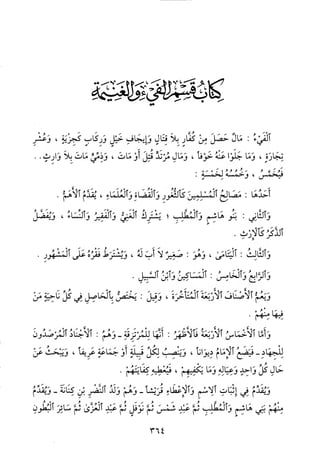 كِتَابُ قَسْمِ الفَيْءِ وَالغَنِيمَةِ
الْفَيْءُ : مَالٌ حَصَلَ مِنْ كُفَّارٍ بِلاَ قِتَالٍ وَإِيجَافِ خَيْلٍ وَرِكَابٍ كَجِزْيَةٍ ، وَعُشْرِ
تِجَارَةٍ ، وَمَا جَلَوْا عَنْهُ خَوْفاً ، وَمَالِ مُرْتَدٍّ قُتِلَ أَوْ مَاتَ ، وَذِمِّيٍّ مَاتَ بِلاَ وَارِثٍ . .
فَيُخَمَّسُ ، وَخُمُسُهُ لِخَمْسَةٍ :
أَحَدُهَا : مَصَالِحُ الْمُسْلِمِينَ كَالثُّغُورِ وَالْقُضَاةِ وَالْعُلَمَاءِ ، يُقَدَّمُ الأَهَمُّ .
وَالثَّانِي : بَنُو هَاشِمٍ وَالْمُطَّلِبِ ، يَشْتَرِكُ الْغَنِيُّ وَالْفَقِيرُ وَالنِّسَاءُ ، وَيُفَضَّلُ
الذَّكَرُ كَالإِرْثِ .
وَالثَّالِثُ : الْيَتَامَىٰ ، وَهُوَ : صَغِيرٌ لاَ أَبَ لَهُ ، وَيُشْتَرَطُ فَقْرُهُ عَلَى الْمَشْهُورِ .
وَالرَّابِعُ وَالْخَامِسُ : الْمَسَاكِينُ وَابْنُ السَّبِيلِ .
وَيَعُمُّ الأَصْنَافَ الأَرْبَعَةَ الْمُتَأَخِّرَةَ ، وَقِيلَ : يَخْتَصُّ بِالْحَاصِلِ فِي كُلِّ نَاحِيَةٍ مَنْ
فِيهَا مِنْهُمْ .
وَأَمَّا الأَخْمَاسُ الأَرْبَعَةُ فَالأَظْهَرُ : أَنَّهَا لِلْمُرْتَزِقَةِ - وَهُمُ : الأَجْنَادُ الْمُرْصَدُونَ
لِلْجِهَادِ - فَيَضَعُ الإِمَامُ دِيوَاناً ، وَيَنْصِبُ لِكُلِّ قَبِيلَةٍ أَوْ جَمَاعَةٍ عَرِيفاً ، وَيَبْحَثُ عَنْ
حَالِ كُلِّ وَاحِدٍ وَعِيَالِهِ وَمَا يَكْفِيهِمْ ، فَيُعْطِيهِ كِفَايَتَهُمْ .
وَيُقَدِّمُ فِي إِثْبَاتِ الِاسْمِ وَالإِعْطَاءِ قُرَيْشاً - وَهُمْ وَلَدُ النَّضْرِ بْنِ كِنَانَةَ - وَيُقَدِّمُ
مِنْهُمْ بَنِي هَاشِمٍ وَالْمُطَّلِبِ ثُمَّ عَبْدِ شَمْسٍ ثُمَّ نَوْفَلٍ ثُمَّ عَبْدِ الْعُزَّىٰ ثُمَّ سَائِرَ الْبُطُونِ
٣٦٤